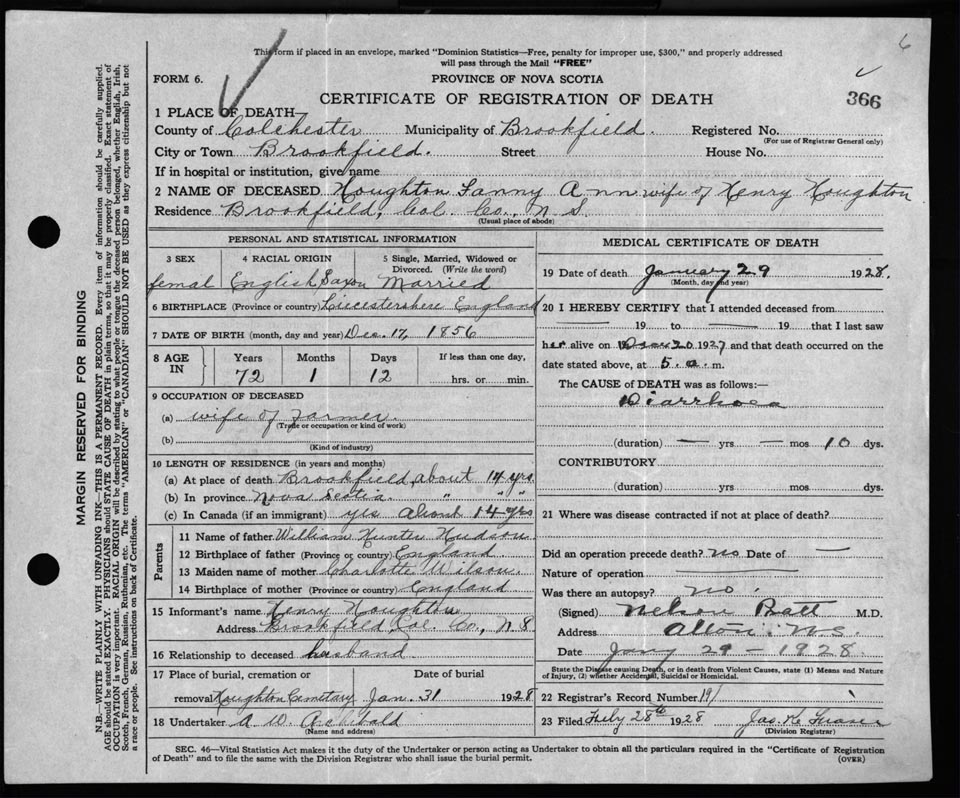 6
This form if placed in an envelope, marked "Dominion Statistics—Free, penalty for improper use, $300," and properly addressed
will pass through the Mail "FREE"
FORM 6.
PROVINCE OF NOVA SCOTIA
CERTIFICATE OF REGISTRATION OF DEATH
366
1 PLACE OF DEATH
County of Colchester Municipality of Brookfield. Registered No.
(For use of Registrar General only)
City or Town Brookfield. Street House No.
If in hospital or institution, give name
2 NAME OF DECEASED Houghton Fanny Ann wife of Henry Houghton
Residence Brookfield, Col. Co., N S.
(Usual place of abode)
PERSONAL AND STATISTICAL INFORMATION
3 SEX
4 RACIAL ORIGIN
5 Single, Married, Widowed or
Divorced. (Write the word)
femal English Saxon Married
6 BIRTHPLACE (Province or country) Leicestershere England
7 DATE OF BIRTH (month, day and year) Dec. 17, 1856
8 AGE IN
Years Months Days If less than one day,
72 1 12 hrs. or min.
9 OCCUPATION OF DECEASED
(a) wife of Farmer.
(Trade or occupation or kind of work)
(b)
(Kind of industry)
10 LENGTH OF RESIDENCE (in years and months)
(a) At place of death Brookfield, about 14 yrs.
(b) In province Nova Scotia. " " "
(c) In Canada (if an immigrant) yes About 14 yrs
Parents
11 Name of father William Hunter Hudson
12 Birthplace of father (Province or country) England
13 Maiden name of mother Charlotte Wilson
14 Birthplace of mother (Province or country) England
15 Informant's name Henry Houghton
Address Brookfield, Col. Co., N S
16 Relationship to deceased husband
17 Place of burial, cremation or Date of burial
removal Houghton Cemetary Jan. 31 1928
18 Undertaker A W. Archibald
(Name and address)
MEDICAL CERTIFICATE OF DEATH
19 Date of death January 29 1928.
(Month, day and year)
20 I HEREBY CERTIFY that I attended deceased from
— 19 to — 19 that I last saw
her alive on Dec 20 1927 and that death occurred on the
date stated above, at 5. a. m.
The CAUSE of DEATH was as follows:—
Diarrhoea
(duration) — yrs — mos 10 dys.
CONTRIBUTORY
(duration) yrs. mos. dys.
21 Where was disease contracted if not at place of death?
Did an operation precede death? no Date of —
Nature of operation —
Was there an autopsy? no.
(Signed) Nelson Pratt M.D.
Address Alton N.S.
Date Jany 29 - 1928.
State the Disease causing Death, or in death from Violent Causes, state (1) Means and Nature
of Injury, (2) whether Accidental, Suicidal or Homicidal.
22 Registrar's Record Number 191
23 Filed 28th 1928 Jas. K Fraser
(Division Registrar)
SEC. 46—Vital Statistics Act makes it the duty of the Undertaker or person acting as Undertaker to obtain all the particulars required in the "Certificate of Registration
of Death" and to file the same with the Division Registrar who shall issue the burial permit.
(OVER)
MARGIN RESERVED FOR BINDING
N.B.—WRITE PLAINLY WITH UNFADING INK—THIS IS A PERMANENT RECORD. Every item of information should be carefully supplied.
AGE should be stated EXACTLY. PHYSICIANS should STATE CAUSE OF DEATH in plain terms, so that it may be properly classified. Exact statement of
OCCUPATION is very important. RACIAL ORIGIN will be described by stating to what people or tongue the deceased person belonged, whether English, Irish,
Scotch, French, German, Russian, Ruthenian, etc. The terms "AMERICAN" or "CANADIAN" SHOULD NOT BE USED as they express citizenship but not
a race or people. See instructions on back of Certificate.